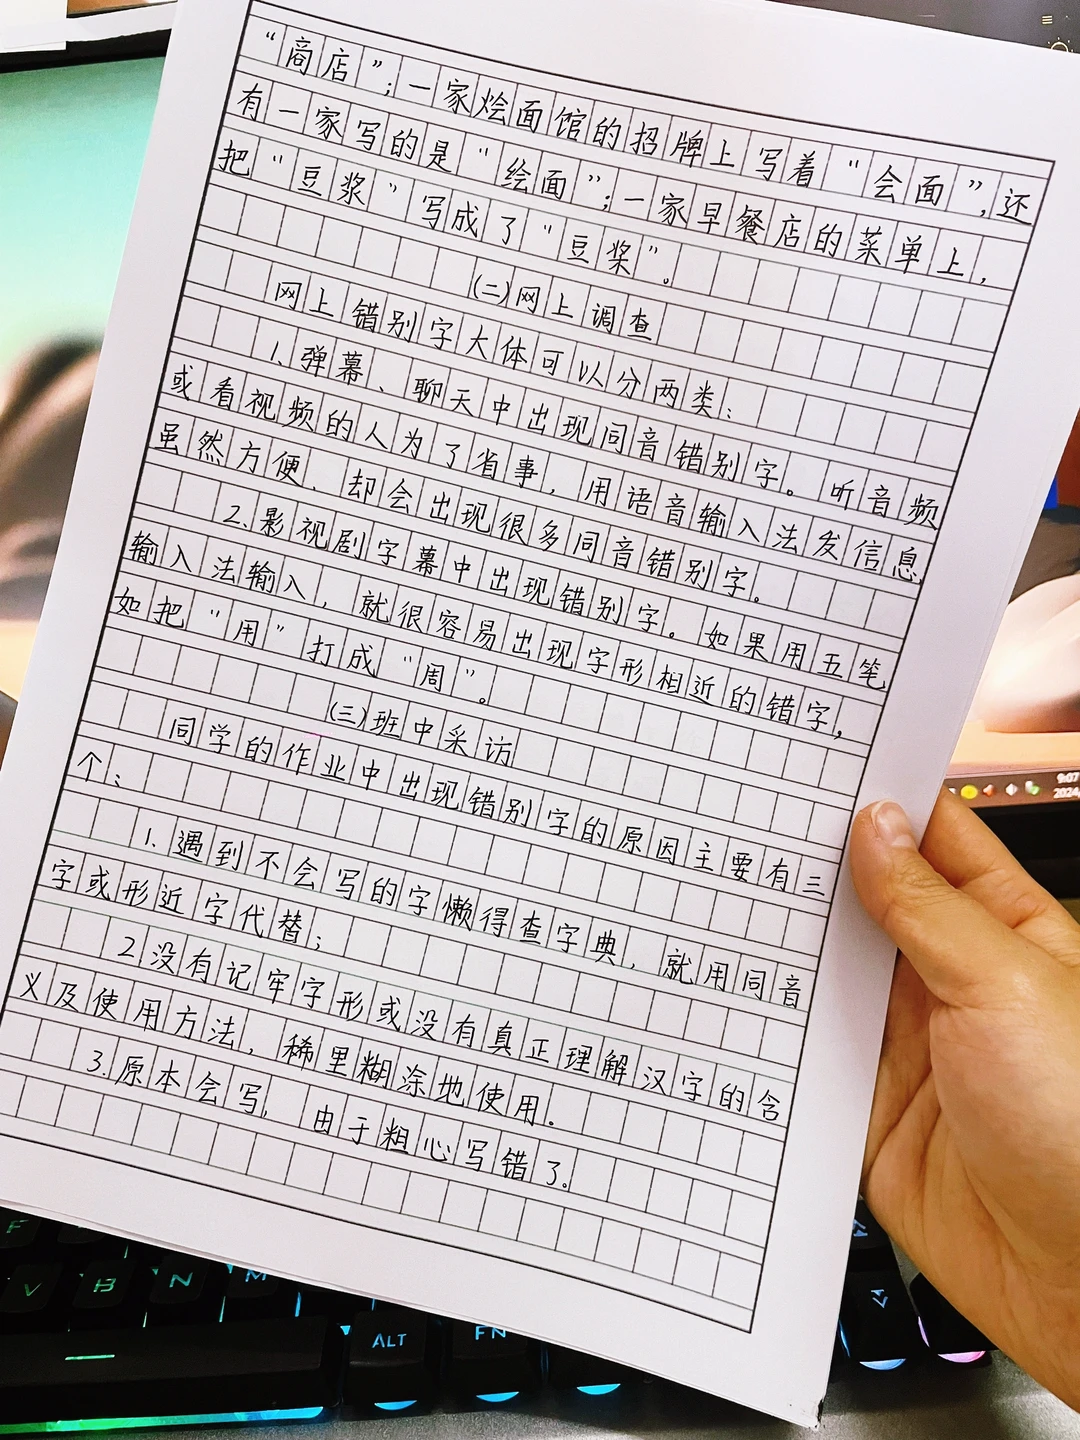 “商店”；一家烩面馆的招牌上写着“会面”，还
有一家写的是“绘面”；一家早餐店的菜单上，
把“豆浆”写成了“豆桨”。
(二)网上调查
网上错别字大体可以分两类：
1.弹幕、聊天中出现同音错别字。听音频
或看视频的人为了省事，用语音输入法发信息
虽然方便、却会出现很多同音错别字。
2.影视剧字幕中出现错别字。如果用五笔
输入法输入，就很容易出现字形相近的错字，
如把“用”打成“周”。
(三)班中采访
同学的作业中出现错别字的原因主要有三
个：
1.遇到不会写的字懒得查字典，就用同音
字或形近字代替；
2没有记牢字形或没有真正理解汉字的含
义及使用方法，稀里糊涂地使用.
3.原本会写，由于粗心写错了。
F
V
B
N
M
ALT
FN
9:07